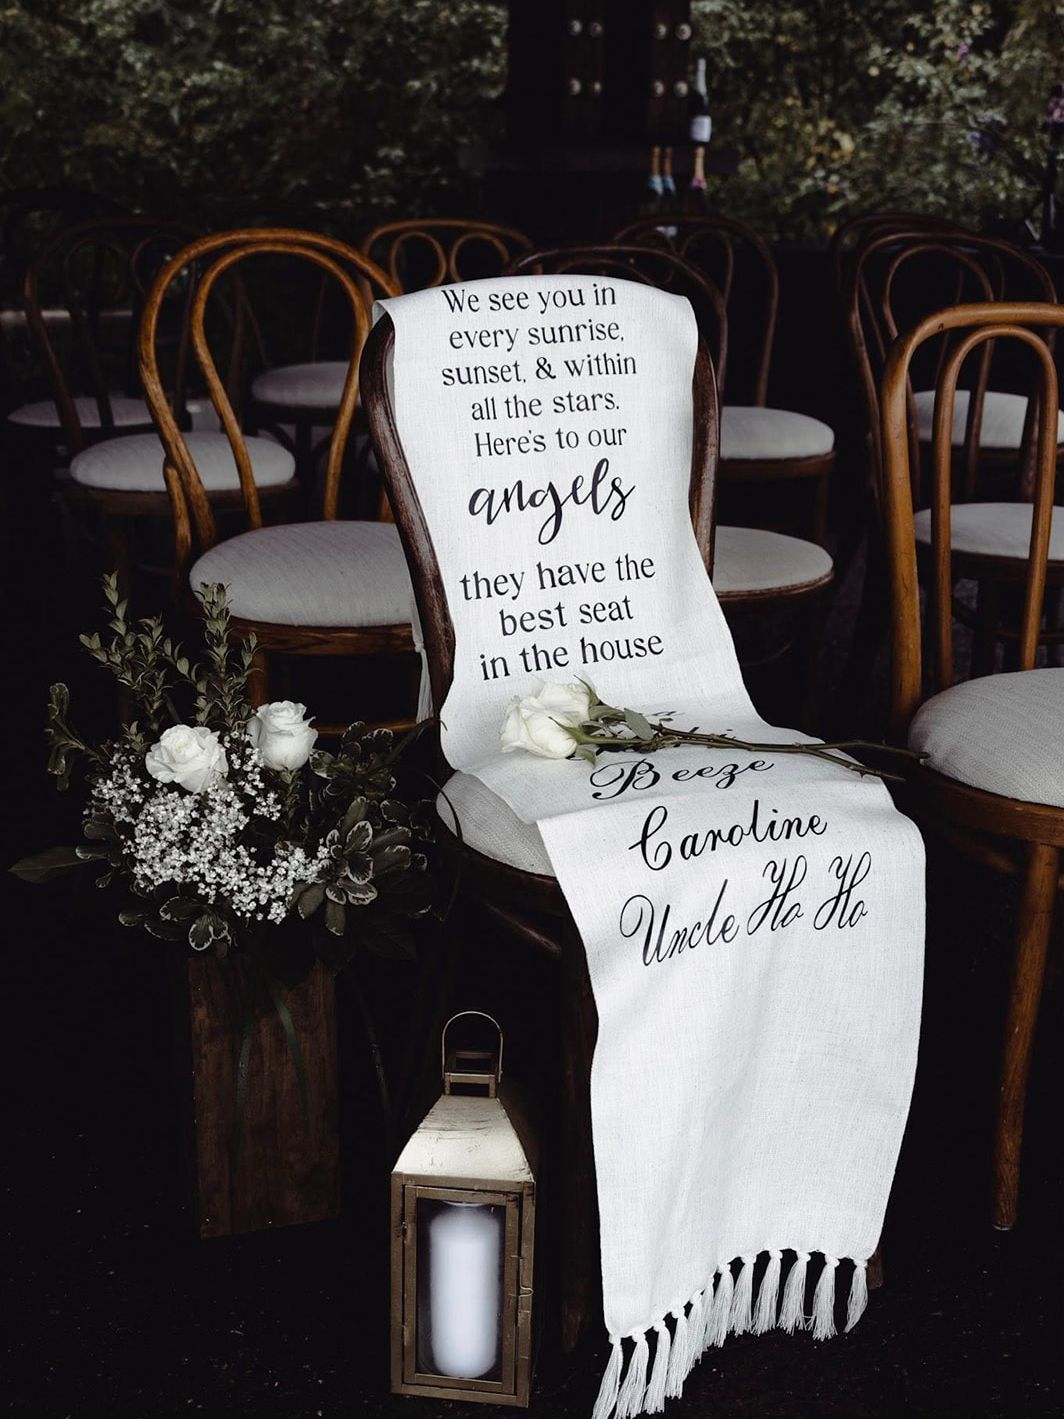 We see you in
every sunrise,
sunset, & within
all the stars.
Here's to our
angels
they have the
best seat
in the house
Beeze
Caroline
Uncle Ho Ho